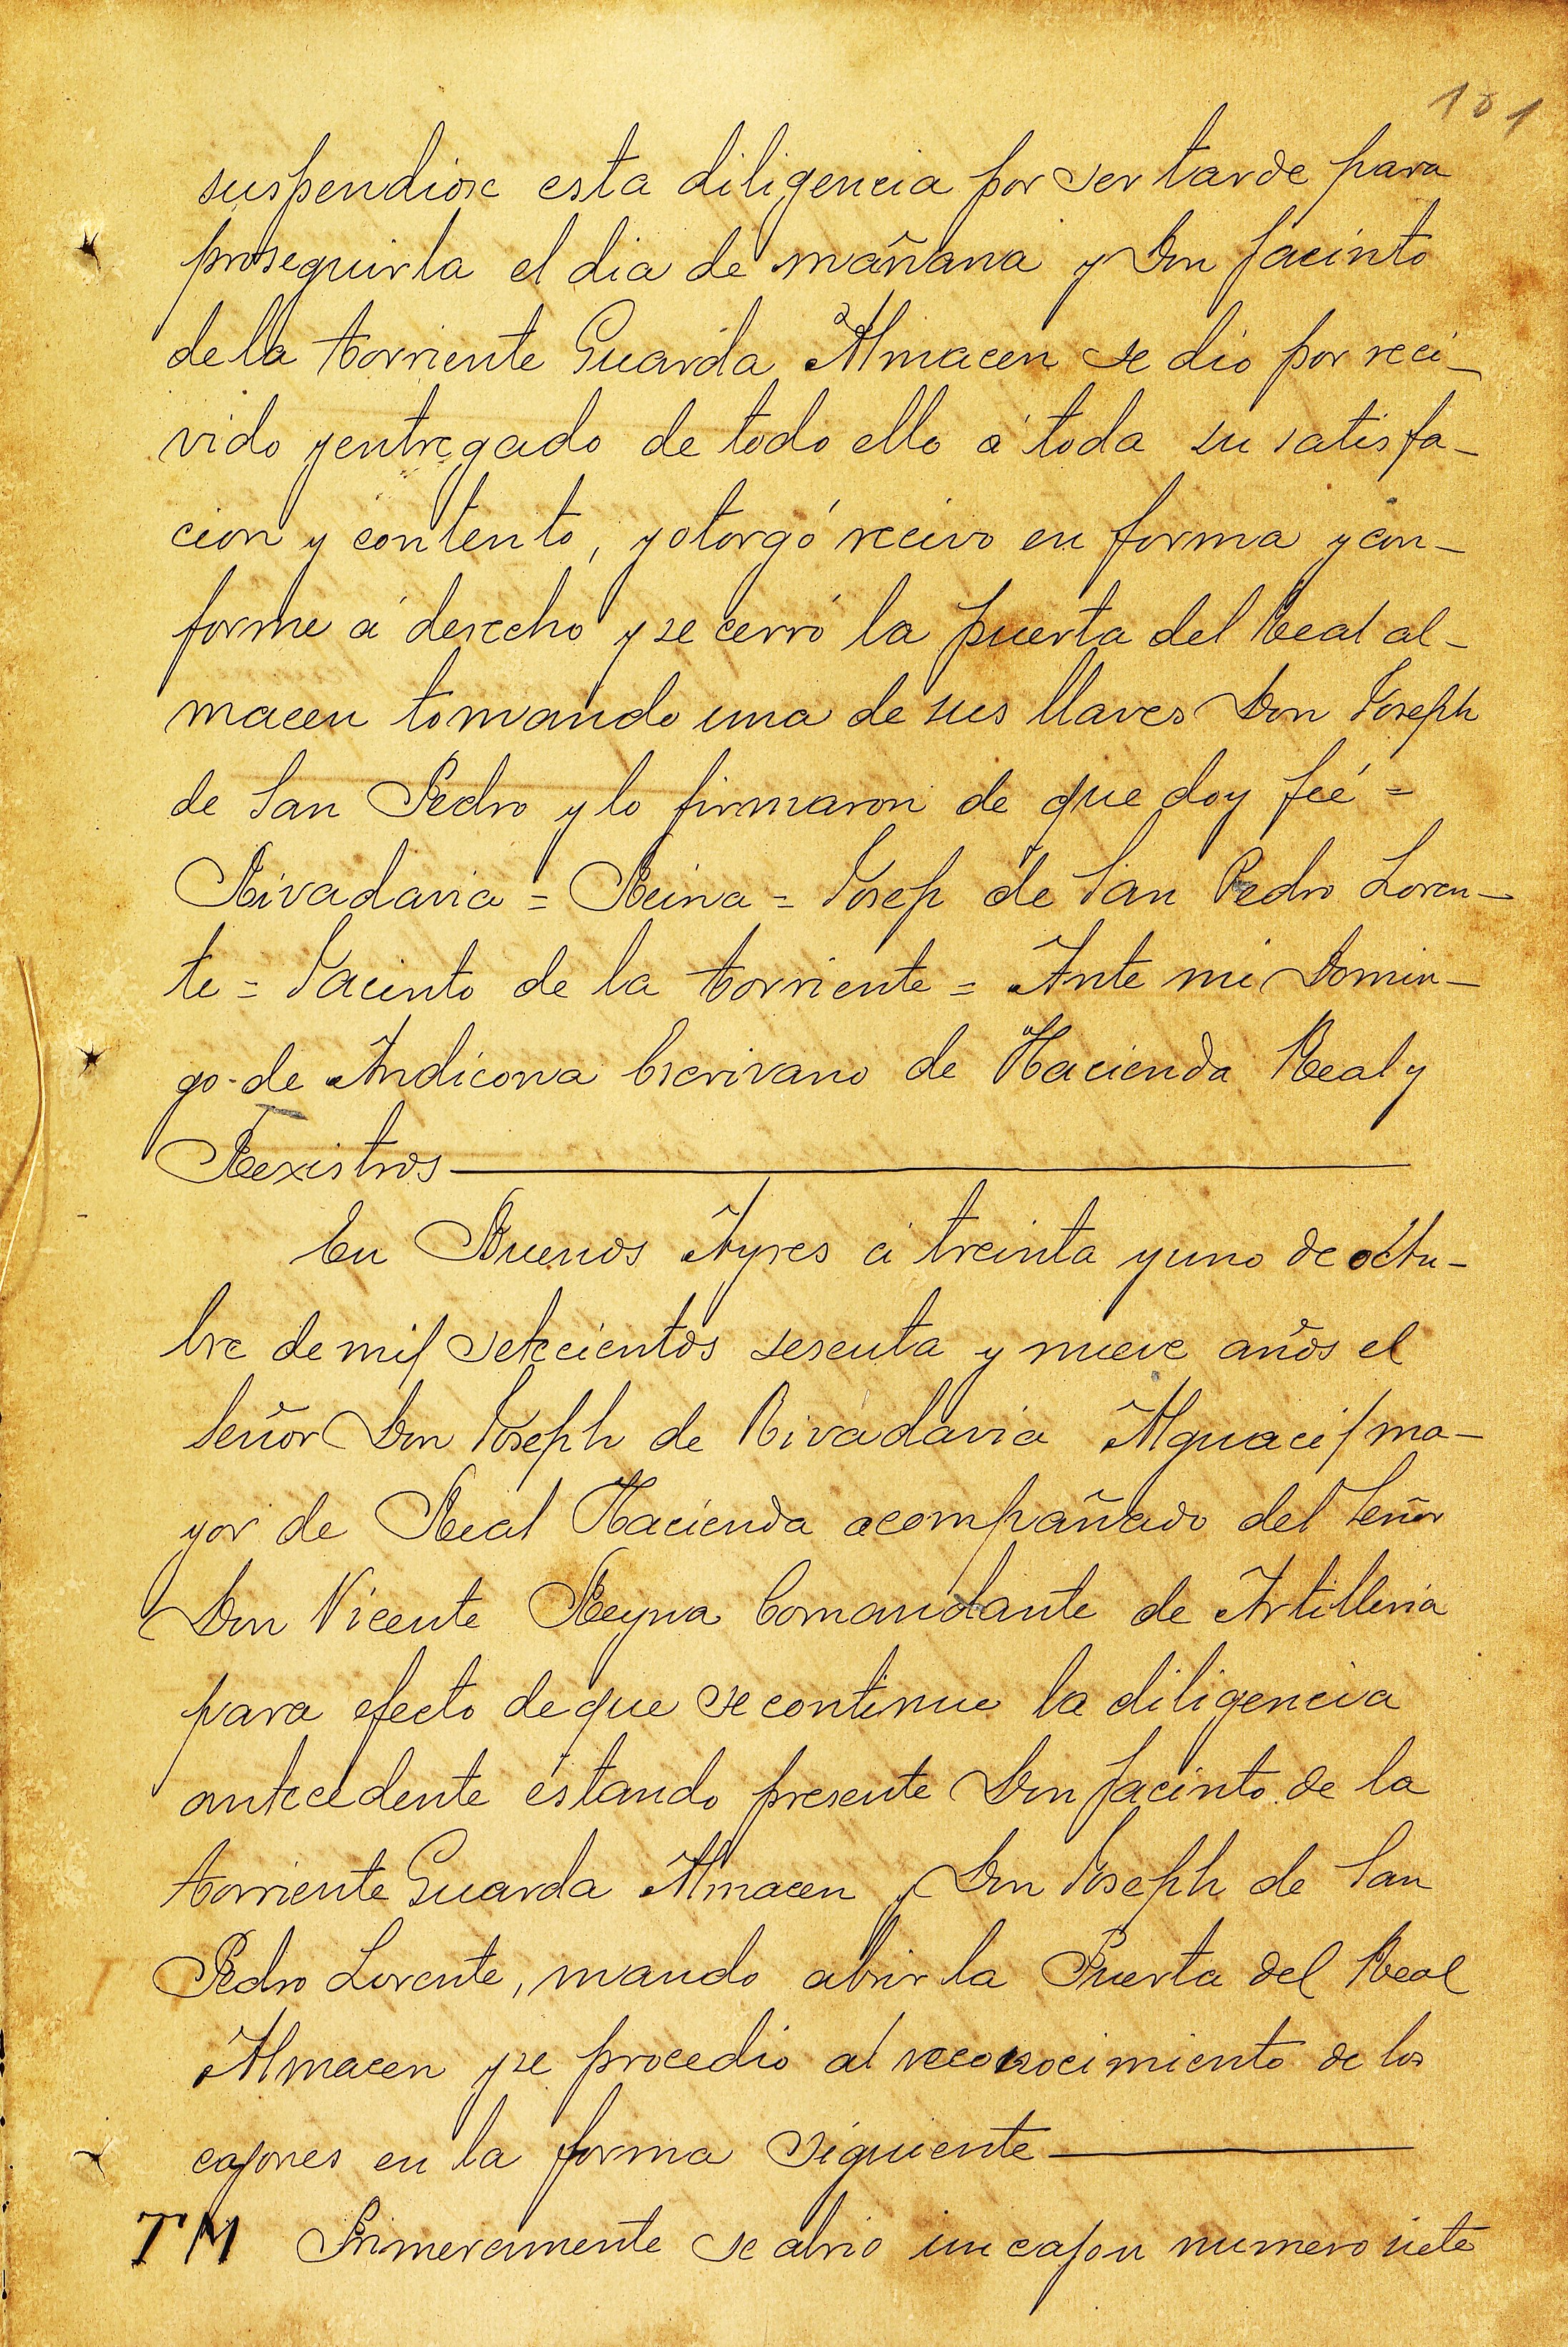 181
suspendiose esta diligencia por ser tarde para
proseguirla el dia de mañana y Don Jacinto
de la torriente Guarda Almacen se dio por reci-
vido y entregado de todo ello á toda su satisfa-
cion y contento, y otorgó recivo en forma y con-
forme á derecho y se cerró la puerta del Real al-
macen tomando una de sus llaves Don Joseph
de San Pedro y lo firmaron de que doy feé =
Rivadavia = Reina = Josep de San Pedro Loren-
te = Jacinto de la torriente = Ante mi Domin-
go de Andicona Escrivano de Hacienda Real y
Rexistros
En Buenos Ayres á treinta y uno de octu-
bre de mil setecientos sesenta y nueve años el
Señor Don Joseph de Rivadavia Alguacil ma-
yor de Real Hacienda acompañado del Señor
Don Vicente Reyna Comandante de Artilleria
para efecto de que se continue la diligencia
antecedente estando presente Don Jacinto de la
torriente Guarda Almacen y Don Joseph de San
Pedro Lorente, mando abrir la Puerta del Real
Almacen y se procedio al reconocimiento de los
cajones en la forma siguiente
TM Primeramente se abrio un cajon numero siete